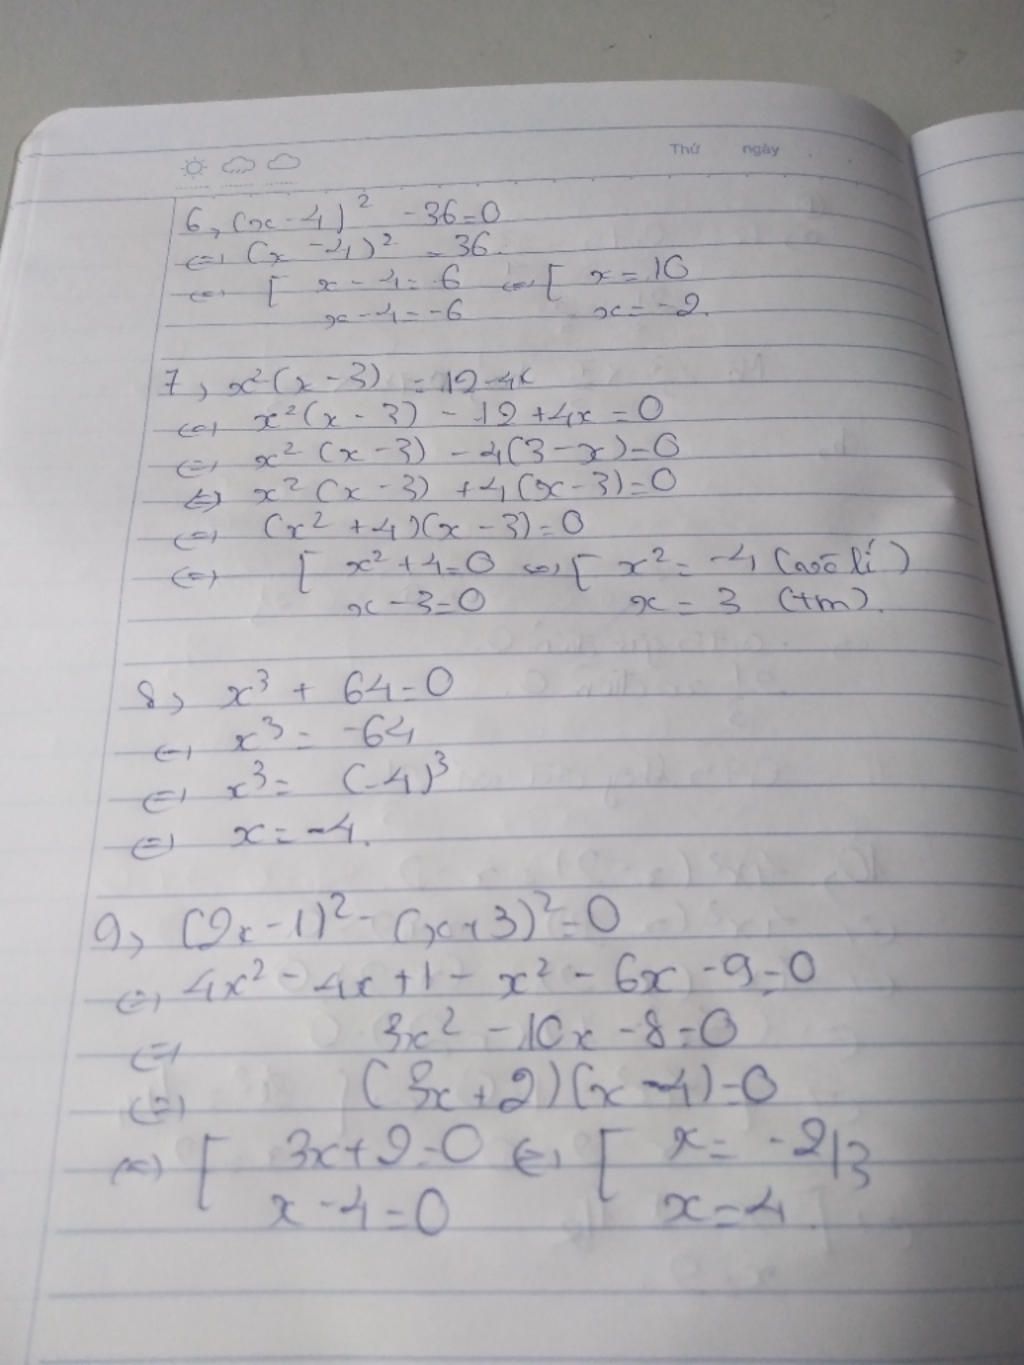 Thứ ngày
6, (x - 4)² - 36 = 0
⇔ (x - 4)² = 36.
⇔ [ x - 4 = 6 ⇔ [ x = 10
x - 4 = -6 x = -2.
7, x²(x - 3) = 12 - 4x
⇔ x²(x - 3) - 12 + 4x = 0
⇔ x²(x - 3) - 4(3 - x) = 0
⇔ x²(x - 3) + 4(x - 3) = 0
⇔ (x² + 4)(x - 3) = 0
⇔ [ x² + 4 = 0 ⇔ [ x² = -4 (vô lí)
x - 3 = 0 x = 3 (tm).
8, x³ + 64 = 0
⇔ x³ = -64
⇔ x³ = (-4)³
⇔ x = -4.
9, (2x - 1)² - (x + 3)² = 0
⇔ 4x² - 4x + 1 - x² - 6x - 9 = 0
⇔ 3x² - 10x - 8 = 0
⇔ (3x + 2)(x - 4) = 0
⇔ [ 3x + 2 = 0 ⇔ [ x = -2/3
x - 4 = 0 x = 4.